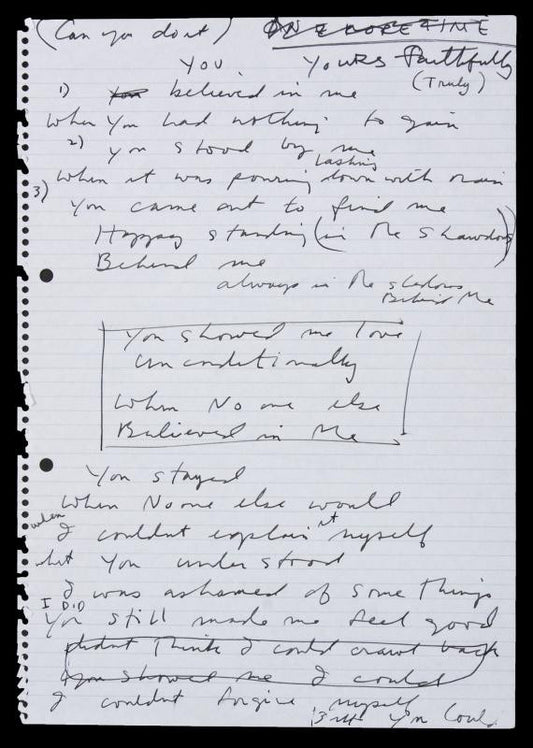 (Can you do it) ONE MORE TIME
YOU. YOURS Faithfully
(Truly)
1) You believed in me
When You had nothing to gain
2) You stood by me
lashing
3) When it was pouring down with rain
You came out to find me
Happy standing (in the shawdows)
Behind me
always in the shadows
Behind Me
You showed me love
Unconditionally
When No one else
Believed in Me
You stayed
When No one else would
when I couldnt explain it myself
but You understood
I was ashamed of some things
I DID
You still made me feel good
didnt Think I could crawl back
You showed me I could
I couldnt forgive myself
But You Could